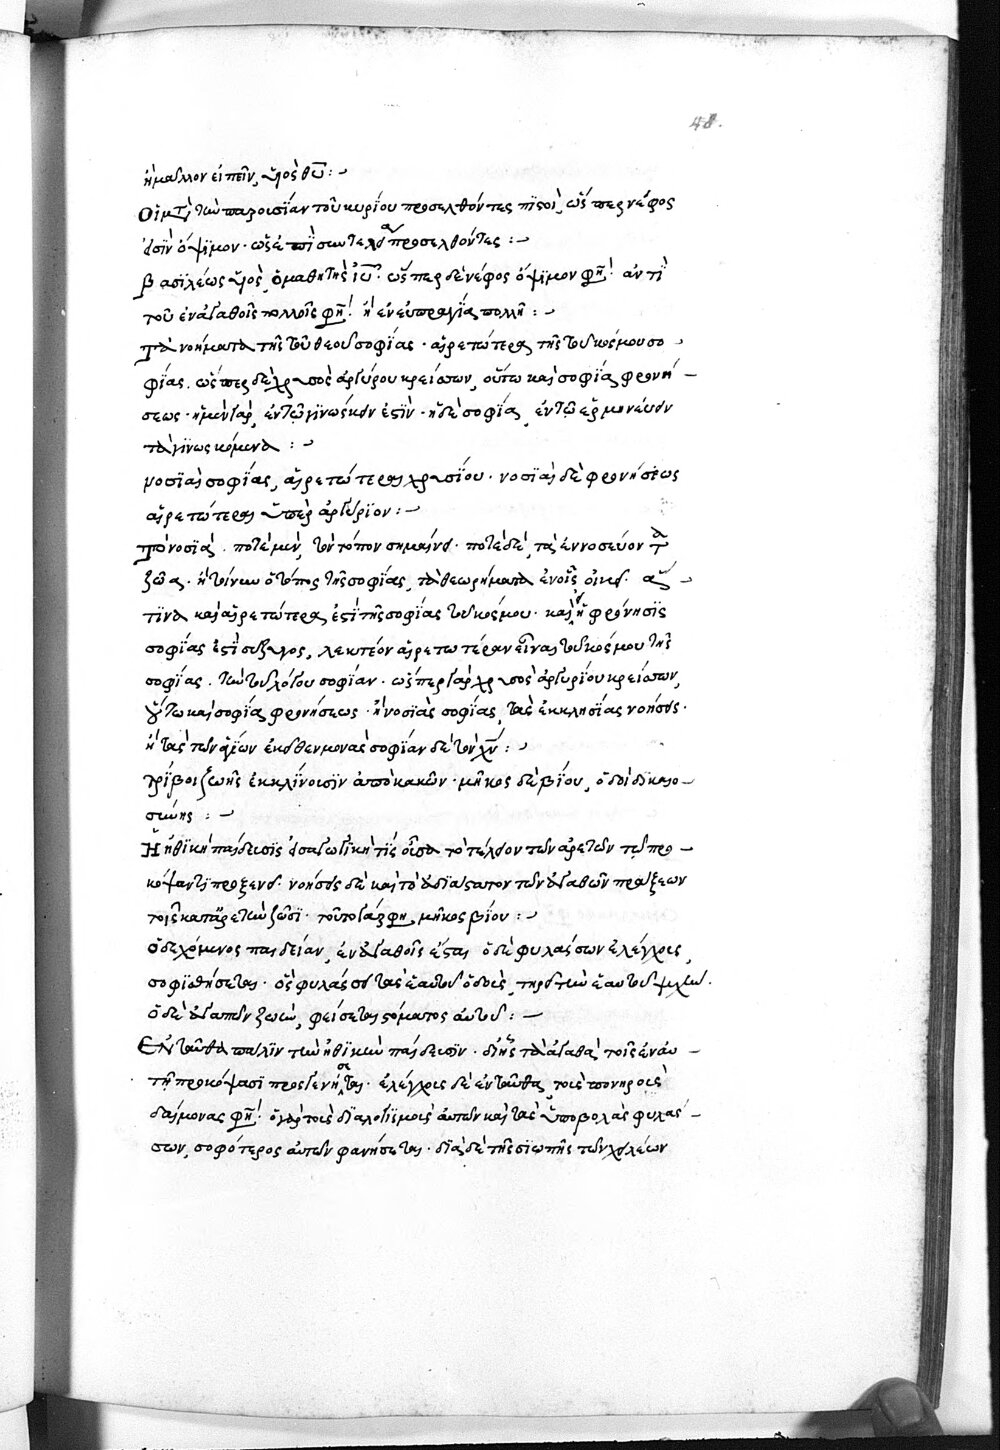 48.
ἢ μᾶλλον εἰπεῖν, υἱὸς θῦ : ~
Οἱ μετὰ τὴν παρουσίαν τοῦ κυρίου προσελθόντες πιστοὶ, ὥσπερ νέφος
εἰσὶν ὄψιμον · ὡς ἐπὶ συντελείαν προσελθόντες : ~
βασιλέως υἱὸς, ὁ μαθητὴς ἰῦ · ὥσπερ δὲ νέφος ὄψιμον φη ! ἀντὶ
τοῦ ἐν ἀγαθοῖς πολλοῖς φη ! ἢ ἐν εὐπραγίᾳ πολλῇ : ~
Τὰ νοήματα τῆς τοῦ θεοῦ σοφίας · αἱρετώτερα τῆς τοῦ κόσμου σο ~
φίας. ὥσπερ δὲ χρυσὸς ἀργύρου κρείττων, οὕτω καὶ σοφία φρονή –
σεως · ἡ μὲν γὰρ, ἐν τῷ γινώσκειν ἐστὶν · ἡ δὲ σοφία, ἐν τῷ ἑρμηνεύειν
τὰ γινωσκόμενα : ~
νοσιαὶ σοφίας, αἱρετώτεραι χρυσίου · νοσιαὶ δὲ φρονήσεως
αἱρετώτεραι ὑπὲρ ἀργύριον : ~
Τὸ νοσιὰ. ποτὲ μὲν, τὸν τόπον σημαίνει · ποτὲ δὲ, τὰ ἐννοσεύοντα
ζῶα · ἢ τοίνυν ὁ τόπος τῆς σοφίας, τὰ θεωρήματα ἐν οἷς οἰκεῖ · ἅ –
τινα καὶ αἱρετώτερα ἐστὶ τῆς σοφίας τοῦ κόσμου · καὶ εἰ ἡ φρόνησις
σοφίας ἐστὶ συζυγος, λεκτέον αἱρετωτέραν εἶναι τοῦ κόσμου τῆς
σοφίας. τὴν τοῦ λόγου σοφίαν · ὥσπερ γὰρ χρυσὸς ἀργυρίου κρείττων,
οὕτω καὶ σοφία φρονήσεως · ἢ νοσιὰς σοφίας, τὰς ἐκκλησίας νοήσεις ·
ἢ τὰς τῶν ἁγίων ἐκεῖθεν μονὰς σοφίαν δὲ τὸν χν : ~
τρίβοι ζωῆς ἐκκλίνουσιν ἀπὸ κακῶν · μῆκος δὲ βίου, ὁδοὶ δικαιο –
σύνης : ~
Ἡ ἠθικὴ παίδευσις εἰσαγωγική τις οὖσα τὸ τέλειον τῶν ἀρετῶν τῷ προ –
κόψαντι προξενεῖ · νοήσεις δὲ καὶ τὸ ἀδιάστατον τῶν ἀγαθῶν πράξεων
τοῖς κατ' ἀρετὴν ζῶσι · τοῦτο γάρ φη μῆκος βίου : ~
ὁ δεχόμενος παιδείαν, ἐν ἀγαθοῖς ἔσται ὁ δὲ φυλάσσων ἐλέγχους,
σοφισθήσεται · ὃς φυλάσσει τὰς ἑαυτοῦ ὁδοὺς, τηρεῖ τὴν ἑαυτοῦ ψυχὴν.
ὁ δὲ ἀγαπῶν ζωὴν, φείσεται στόματος αὐτοῦ : ~
Ἐνταῦθα πάλιν τὴν ἠθικὴν παίδευσιν · δι' ἧς τὰ ἀγαθὰ τοῖς ἐν αὐ –
τῇ προκόψασι προσγενήσεται · ἐλέγχους δὲ ἐνταῦθα, τοὺς πονηροὺς
δαίμονας φη ! ὁ γὰρ τοὺς διαλογισμοὺς αὐτῶν καὶ τὰς ὑποβολὰς φυλάσ –
σων, σοφώτερος αὐτῶν φανήσεται · διὰ δὲ τῆς σιωπῆς τῶν χειλέων